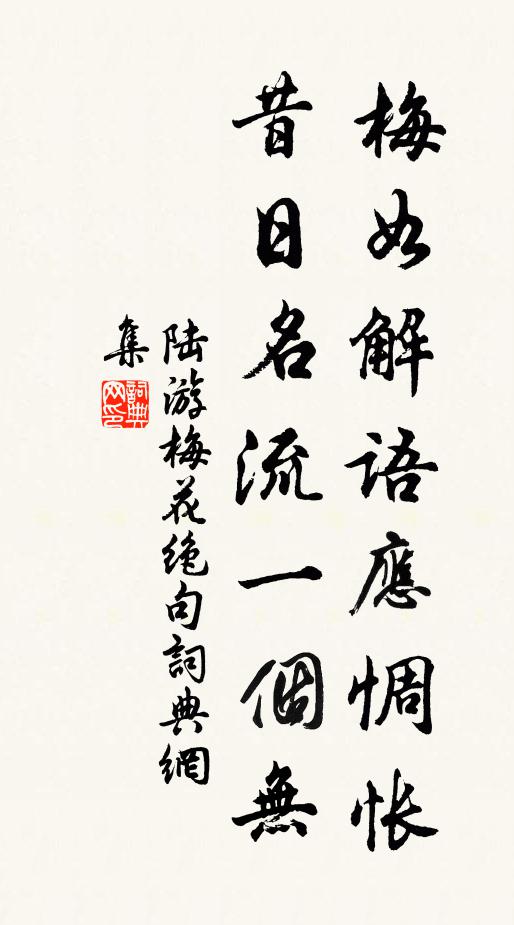 梅如解語應惆悵
昔日名流一個無
陸游梅花絶句詞典網
集
詞典
网印